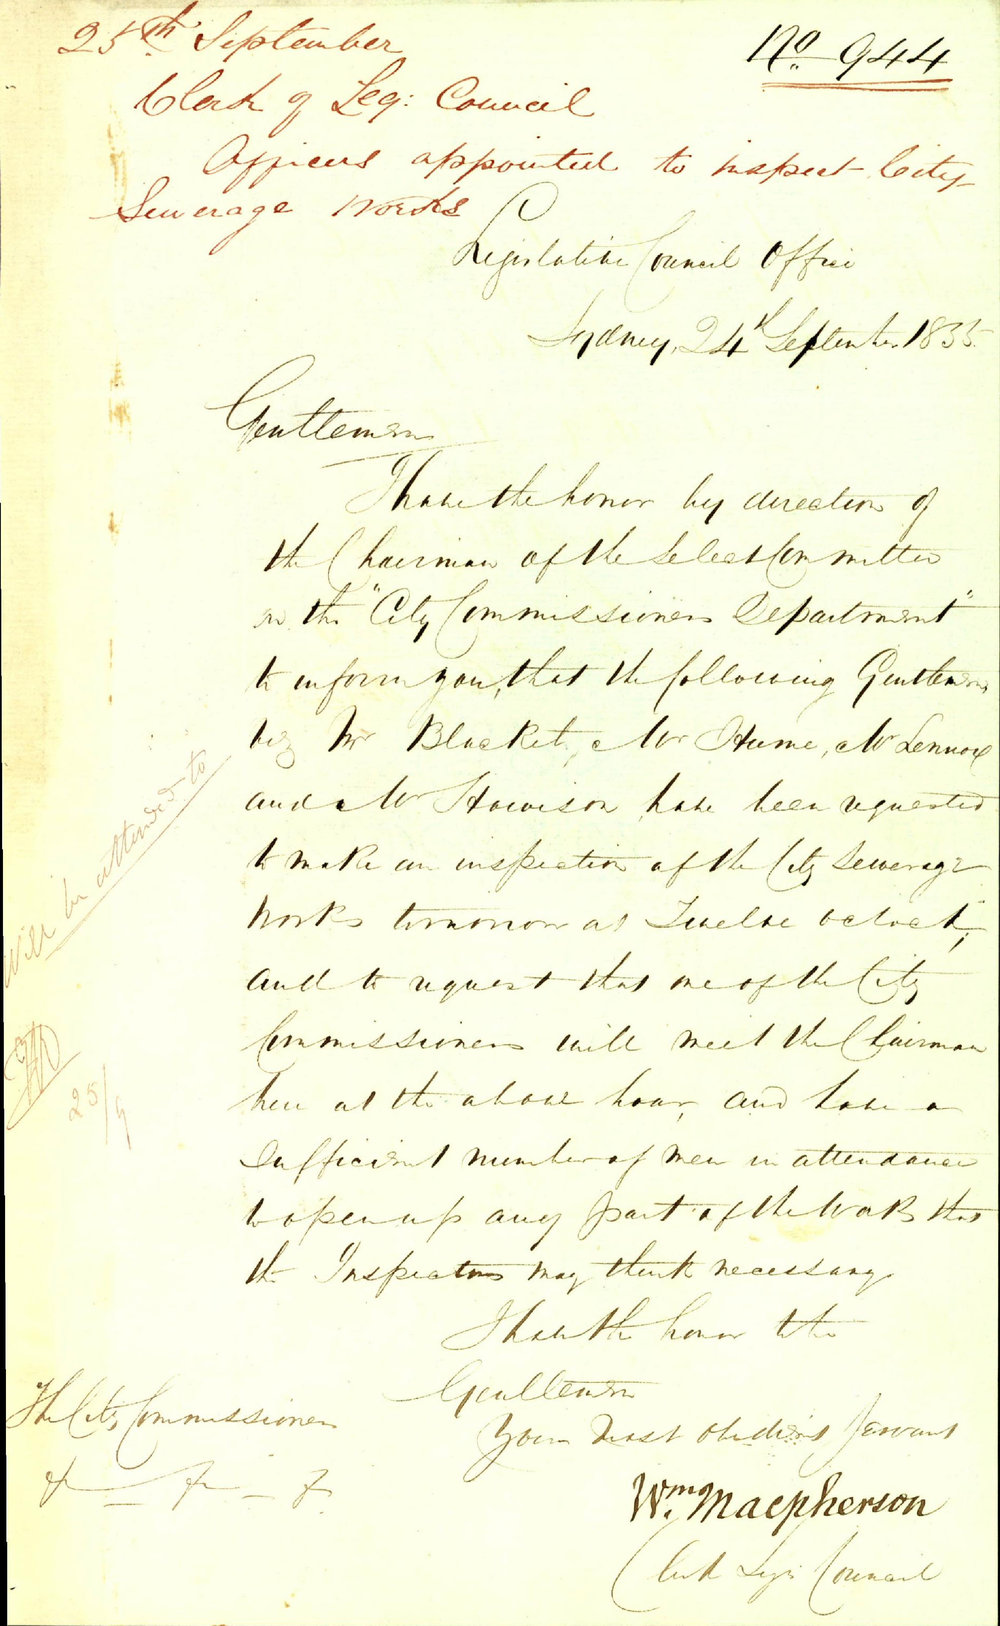 25th September
No. 944
Clerk of Leg: Council
Officers appointed to inspect City
Sewerage Works
Legislative Council Office
Sydney, 24th September 1855.
Gentlemen
I have the honor by direction of
the Chairman of the Select Committee
on the "City Commissioners Department"
to inform you, that the following Gentlemen
viz Mr Blacket, Mr Hume, Mr Lennox
and Mr Howison have been requested
to make an inspection of the City Sewerage
Works tomorrow at Twelve oclock,
and to request that one of the City
Commissioners will meet the Chairman
here at the above hour, and have a
sufficient number of men in attendance
to open up any part of the Works that
the Inspectors may think necessary
I have the honor to be
Gentlemen
Your most obedient Servant
Wm. Macpherson
Clerk Legis: Council
The City Commissioners
& & &
Will be attended to
25/9